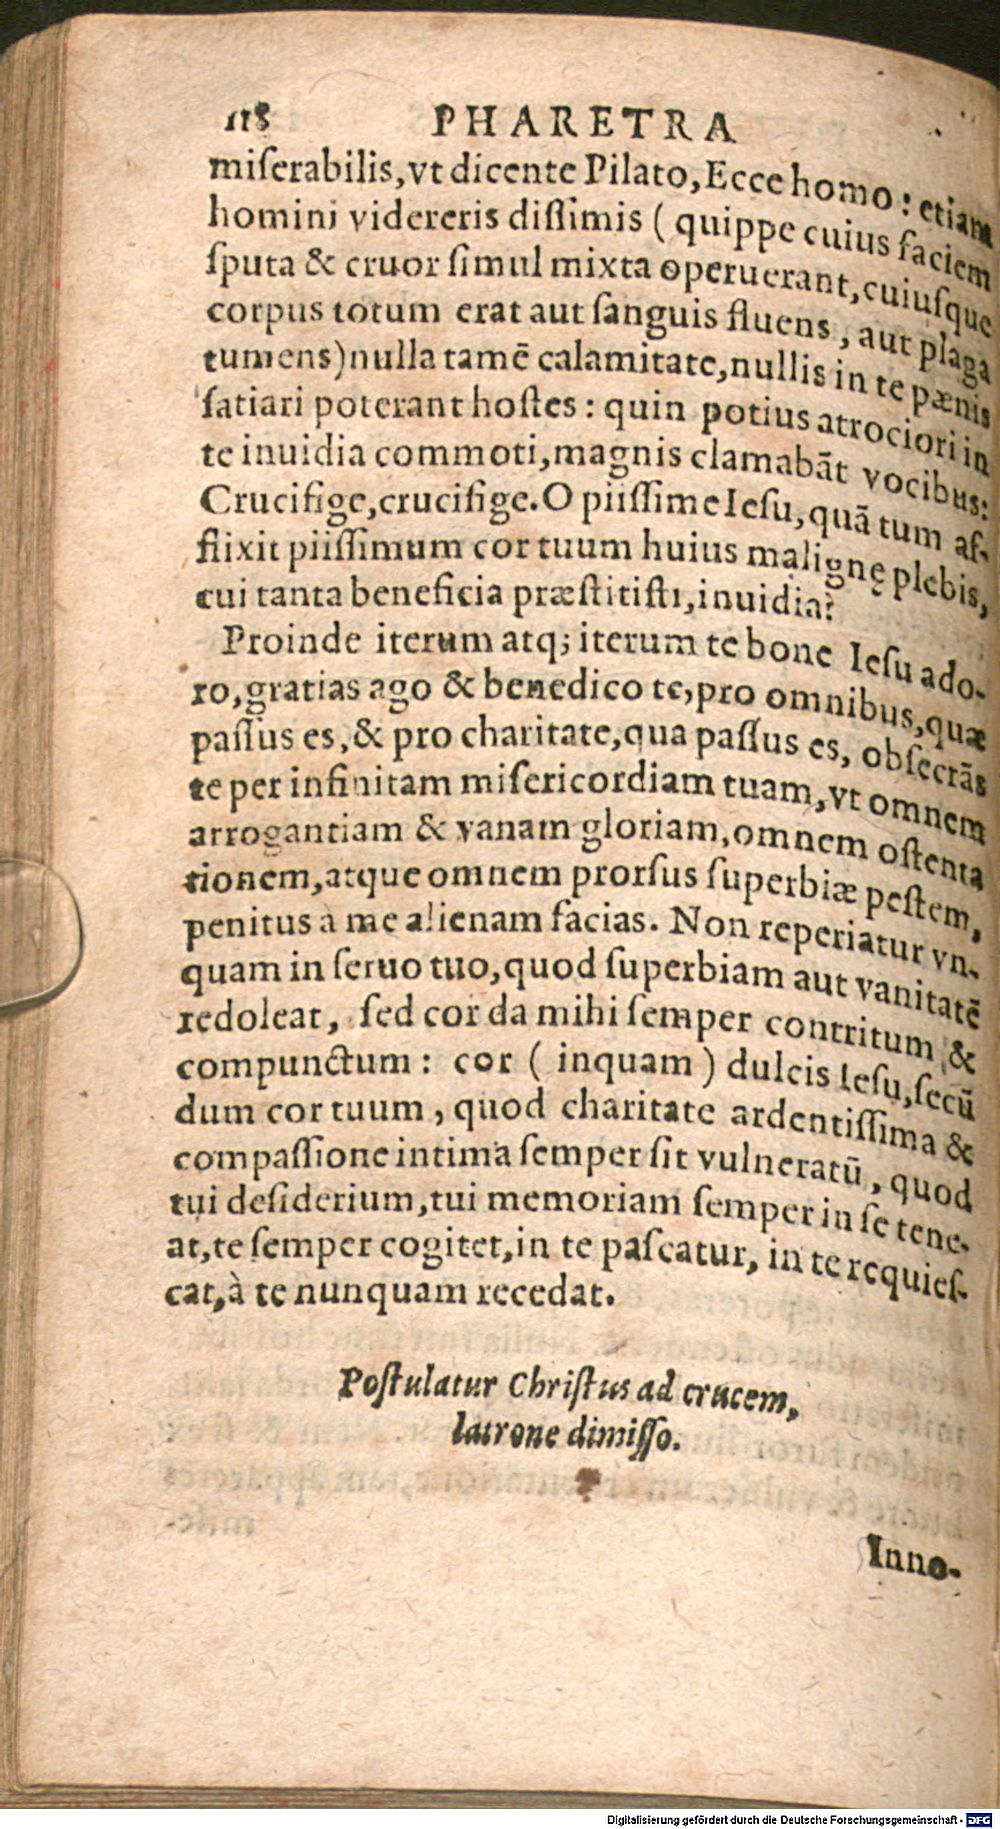 118 PHARETRA
miſerabilis,vt dicente Pilato,Ecce homo: etiam
homini videreris diſſimis ( quippe cuius faciem
ſputa & cruor ſimul mixta operuerant,cuiuſque
corpus totum erat aut ſanguis fluens, aut plaga
tumens)nulla tamē calamitate,nullis in te pænis
ſatiari poterant hoſtes: quin potius atrociori in
te inuidia commoti,magnis clamabāt vocibus:
Crucifige,crucifige.O piiſſime Ieſu,quā tum af-
flixit piiſſimum cor tuum huius malignę plebis,
cui tanta beneficia præſtitiſti,inuidia?
Proinde iterum atq; iterum te bone Ieſu ado-
ro,gratias ago & benedico te,pro omnibus,quæ
paſſus es,& pro charitate,qua paſſus es, obſecrās
te per infinitam miſericordiam tuam,vt omnem
arrogantiam & vanam gloriam,omnem oſtenta
tionem,atque omnem prorſus ſuperbiæ peſtem,
penitus à me alienam facias. Non reperiatur vn-
quam in ſeruo tuo,quod ſuperbiam aut vanitatē
redoleat, ſed cor da mihi ſemper contritum &
compunctum: cor ( inquam ) dulcis Ieſu,ſecū
dum cor tuum, quod charitate ardentiſſima &
compaſſione intima ſemper ſit vulneratū, quod
tui deſiderium,tui memoriam ſemper in ſe tene-
at,te ſemper cogitet,in te paſcatur, in te requieſ-
cat,à te nunquam recedat.
Poſtulatur Chriſtus ad crucem,
latrone dimiſſo.
Inno-
Digitalisierung gefördert durch die Deutsche Forschungsgemeinschaft - DFG